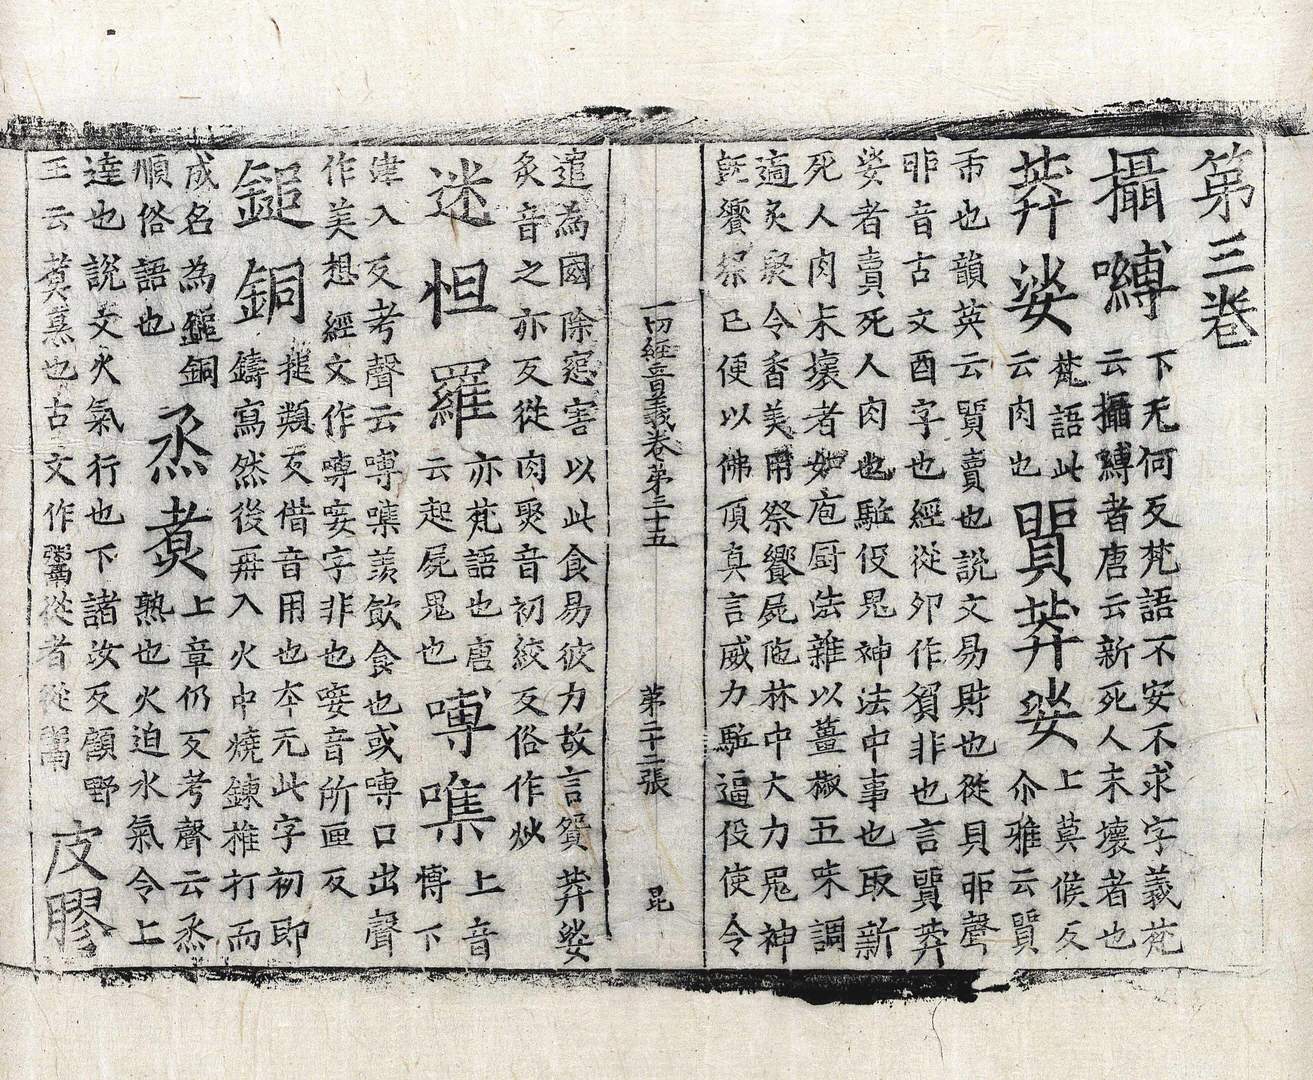 第三卷
攝嚩
下无何反梵語不安不求字義梵
云攝嚩者唐云新死人未壞者也
莽娑
梵語此
云肉也
貿莽娑
上莫候反
尒雅云貿
帀也韻英云貿賣也說文易財也從貝戼聲
戼音古文酉字也經從夘作貿非也言貿莽
娑者賣死人肉也駈伇鬼神法中事也取新
死人肉未壞者如庖厨法雜以薑椒五味調
適炙㷅令香美用祭饗屍陁林中大力鬼神
既饗祭已便以佛頂真言威力駈逼伇使令
一切經音義卷第三十五
第二十二張
昆
追為國除怨害以此食易彼力故言貿莽娑
炙音之亦反從肉㷅音初絞反俗作炒
迷怛羅
亦梵語也唐
云起屍鬼也
㗘㗱
上音
博下
津入反考聲云㗘㗱羨飲食也或㗘口出聲
作美想經文作㗘唼字非也唼音所匝反
鎚銅
搥類反借音用也本无此字初即
鑄寫然後再入火中燒鍊椎打而
成名為鎚銅
順俗語也
烝煮
上章仍反考聲云烝
熟也火迫水氣令上
達也說文火氣行也下諸汝反顧野
王云煑烝也古文作從者從
皮膠